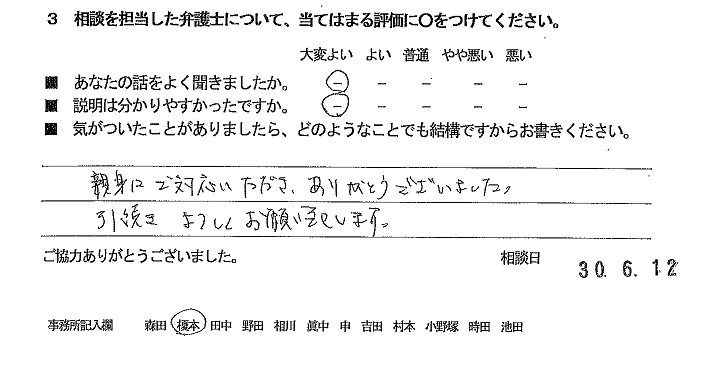 3 相談を担当した弁護士について、当てはまる評価に〇をつけてください。
大変よい よい 普通 やや悪い 悪い
■ あなたの話をよく聞きましたか。 - - - - -
■ 説明は分かりやすかったですか。 - - - - -
■ 気がついたことがありましたら、どのようなことでも結構ですからお書きください。
親身にご対応いただき、ありがとうございました。
引続き よろしくお願い致します。
ご協力ありがとうございました。
相談日 30. 6. 12
事務所記入欄 森田 榎本 田中 野田 相川 眞中 申 吉田 村本 小野塚 時田 池田